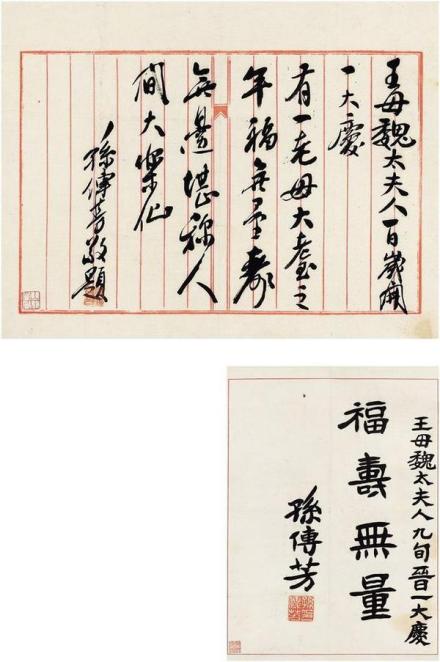 王母魏太夫人一百歲開
一大慶
有一老母大耋之
年福無量壽
無邊堪稱人
間大樂仙
孫傳芳敬題
王母魏太夫人九旬晉一大慶
福壽無量
孫傳芳